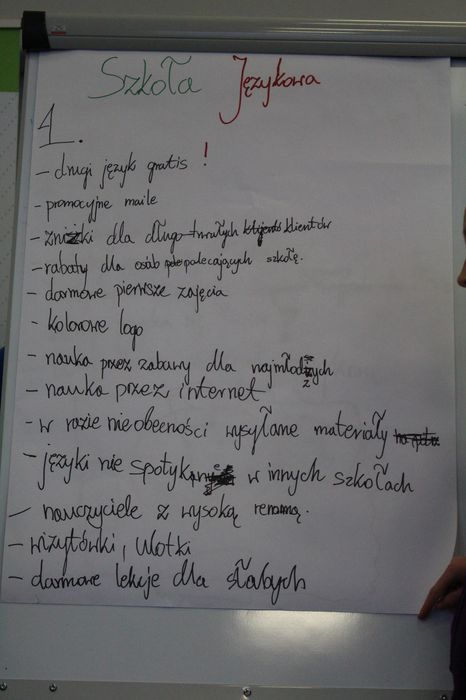 Szkoła Językowa
1.
- drugi język gratis !
- promocyjne maile
- zniżki dla długo trwałych klientów
- rabaty dla osób polecających szkołę.
- darmowe pierwsze zajęcia
- kolorowe logo
- nauka przez zabawy dla najmłodszych
- nauka przez internet
- w razie nieobecności wysyłane materiały
- języki nie spotykane w innych szkołach
- nauczyciele z wysoką renomą.
- wizytówki, ulotki
- darmowe lekcje dla słabych